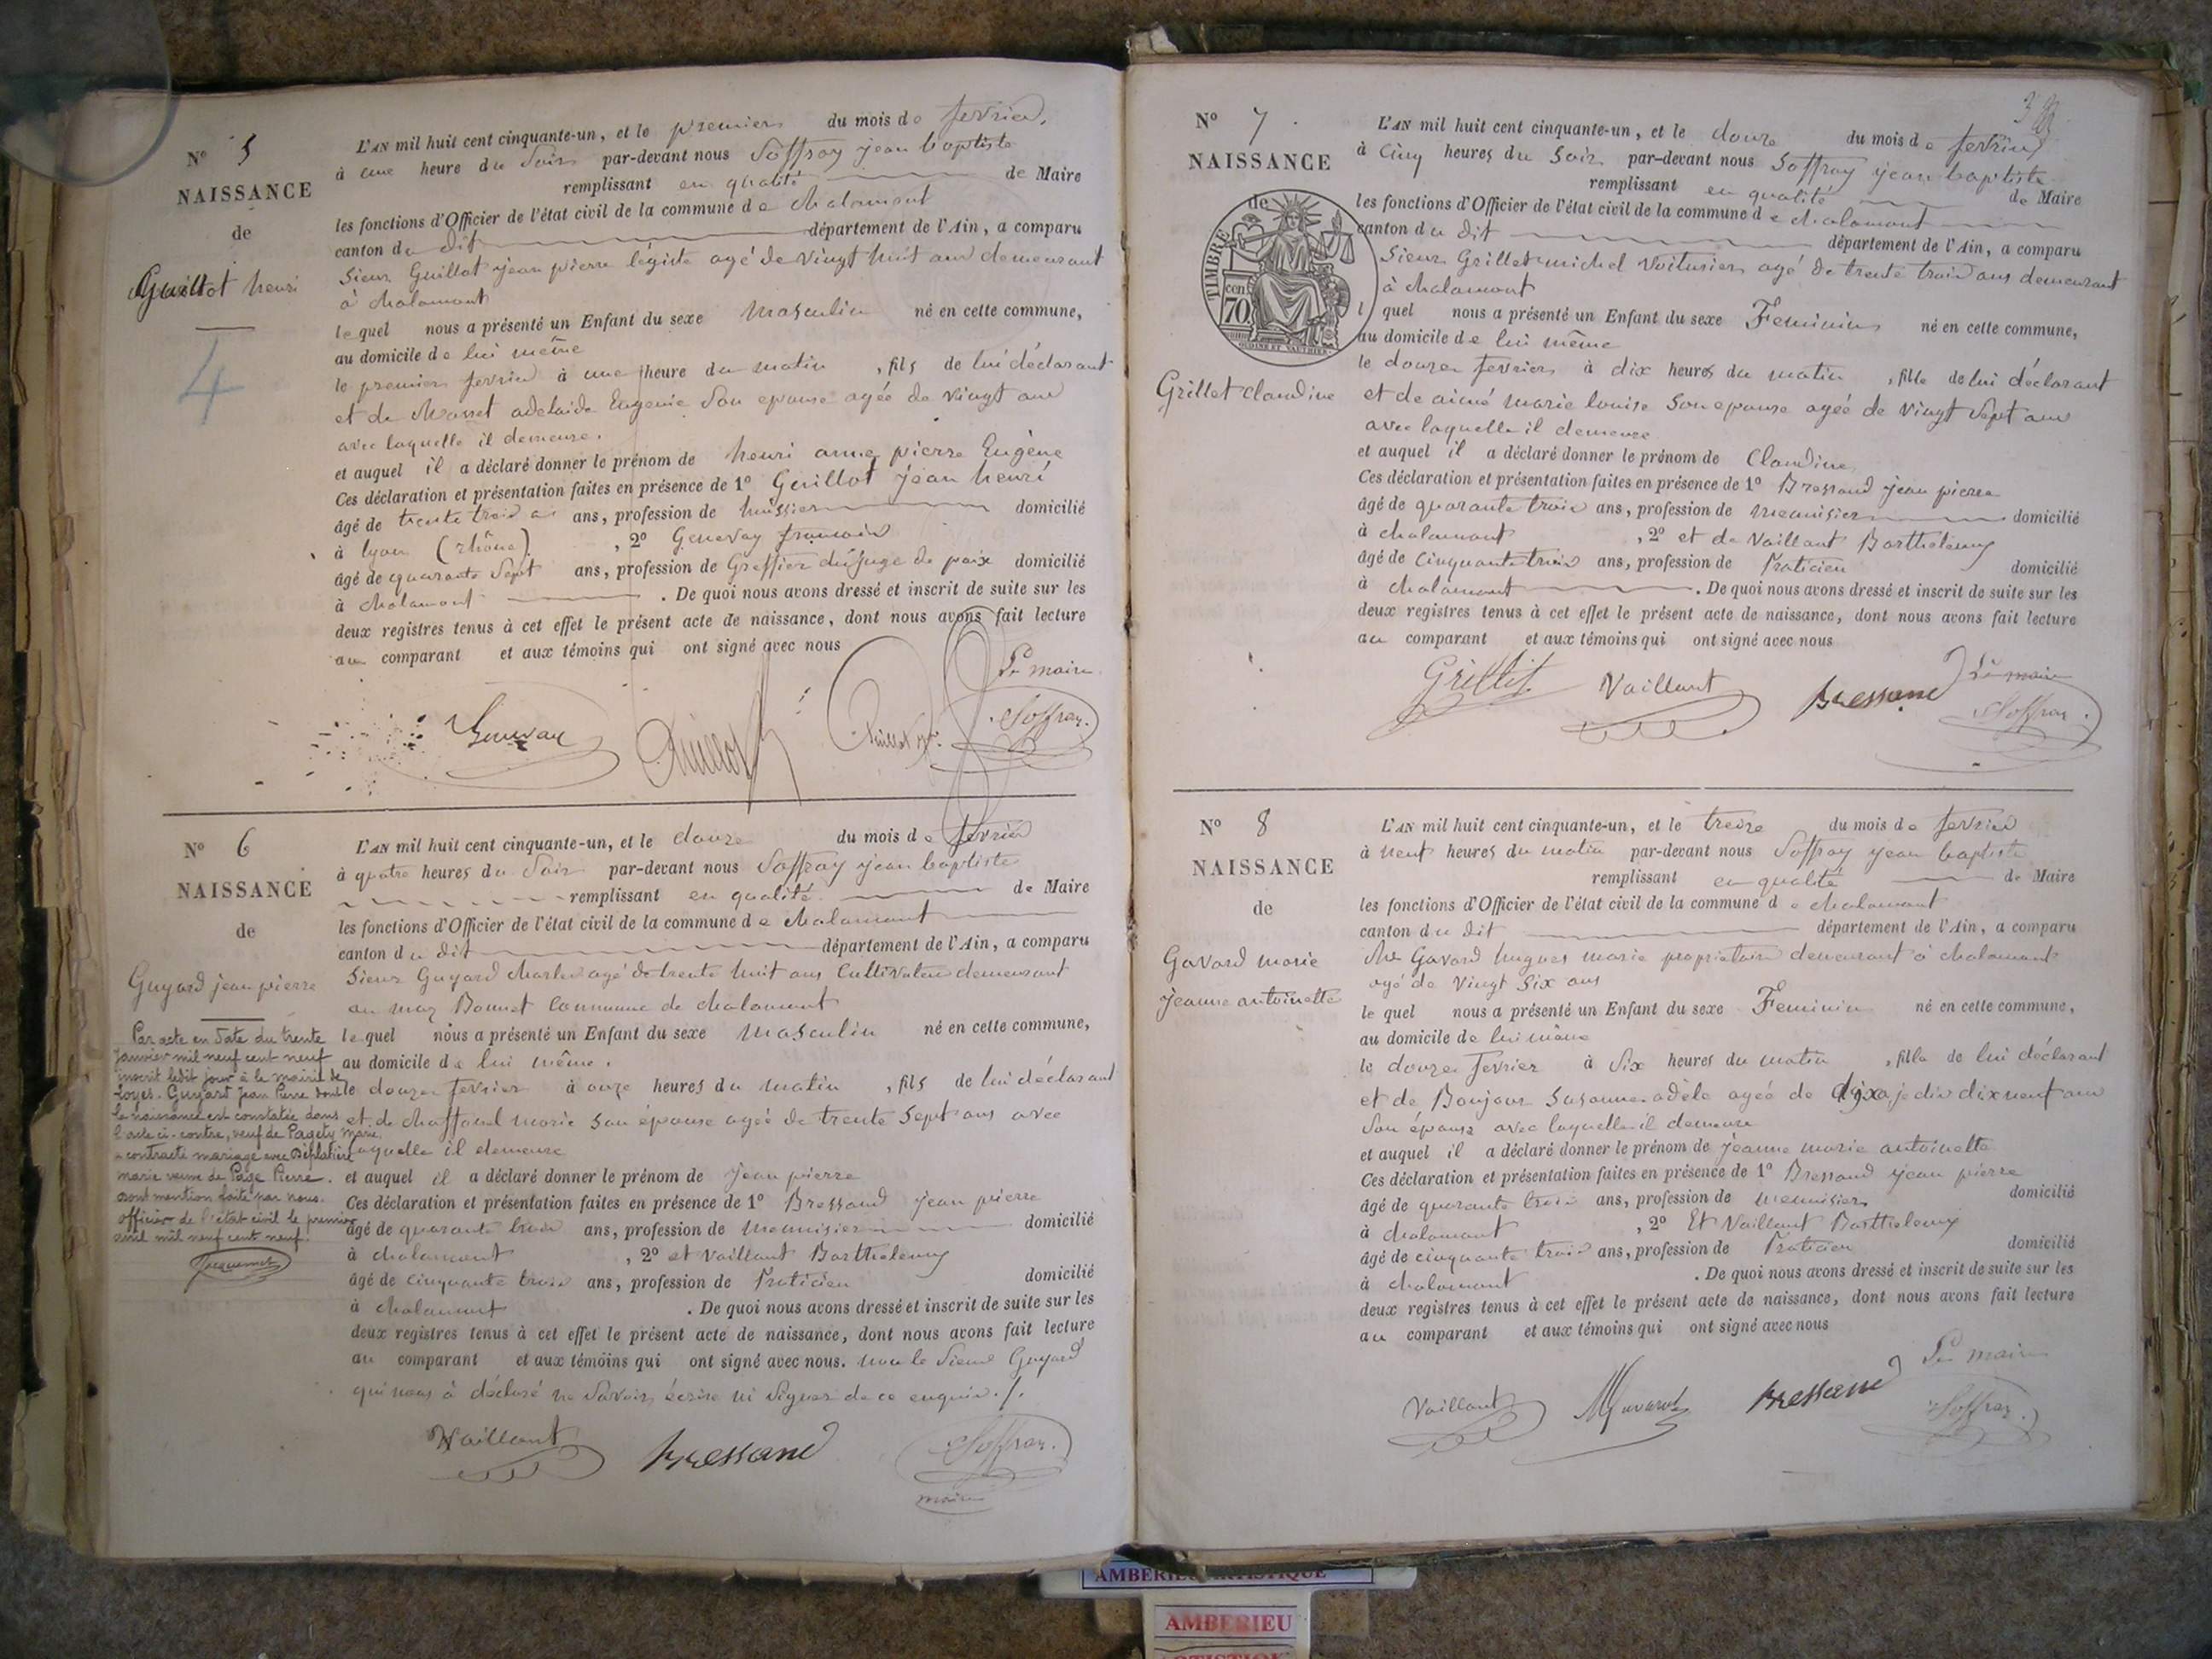 N° 5
NAISSANCE
de
Guillot henri
4
L'AN mil huit cent cinquante-un, et le premier du mois de fevrier,
à une heure du Soir par-devant nous Soffray jean baptiste
remplissant en qualité de Maire
les fonctions d'Officier de l'état civil de la commune de chalamont
canton du dit département de l'Ain, a comparu
Sieur Guillot jean pierre légiste agé de vingt huit ans demeurant
à chalamont
lequel nous a présenté un Enfant du sexe masculin né en cette commune,
au domicile de lui même
le premier fevrier à une heure du matin, fils de lui déclarant
et de Masset adelaide Eugenie Son epouse agée de vingt ans
avec laquelle il demeure.
et auquel il a déclaré donner le prénom de henri pierre Eugène
Ces déclaration et présentation faites en présence de 1° Guillot jean henri
âgé de trente trois ans, profession de huissier domicilié
à lyon (rhône), 2° Genevay francois
âgé de quarante Sept ans, profession de Greffier du juge de paix domicilié
à chalamont. De quoi nous avons dressé et inscrit de suite sur les
deux registres tenus à cet effet le présent acte de naissance, dont nous avons fait lecture
au comparant et aux témoins qui ont signé avec nous
Le maire
Genevay Guillot Guillot Soffray
N° 6
NAISSANCE
de
Guyard jean pierre
Par acte en date du trente
janvier mil neuf cent neuf
inscrit ledit jour à la mairie de
Loyes. Guyard Jean Pierre dont
la naissance est constatée dans
l'acte ci-contre, veuf de Pagety Marie,
a contracté mariage avec Déplatière
marie veuve de Page Pierre.
dont mention faite par nous.
officier de l'état civil le premier
avril mil neuf cent neuf.
Jacquemet
L'AN mil huit cent cinquante-un, et le douze du mois de fevrier
à quatre heures du Soir par-devant nous Soffray jean baptiste
remplissant en qualité de Maire
les fonctions d'Officier de l'état civil de la commune de chalamont
canton du dit département de l'Ain, a comparu
Sieur Guyard charles agé de trente huit ans Cultivateur demeurant
au maz Bonnet Commune de chalamont
lequel nous a présenté un Enfant du sexe masculin né en cette commune,
au domicile de lui même.
le douze fevrier à onze heures du matin, fils de lui déclarant
et de marie son épouse agée de trente Sept ans avec
laquelle il demeure
et auquel il a déclaré donner le prénom de jean pierre
Ces déclaration et présentation faites en présence de 1° Bressand jean pierre
âgé de quarante trois ans, profession de menuisier domicilié
à chalamont, 2° et Vaillant Barthelemy
âgé de cinquante trois ans, profession de Praticien domicilié
à chalamont. De quoi nous avons dressé et inscrit de suite sur les
deux registres tenus à cet effet le présent acte de naissance, dont nous avons fait lecture
au comparant et aux témoins qui ont signé avec nous. non le Sieur Guyard
qui nous à déclaré ne Savoir écrire ni Signer de ce enquis ./.
Vaillant Bressand Soffray
maire
N° 7
NAISSANCE
de
TIMBRE
70 cen
Grillet claudine
L'AN mil huit cent cinquante-un, et le douze du mois de fevrier
à Cinq heures du Soir par-devant nous Soffray jean baptiste
remplissant en qualité de Maire
les fonctions d'Officier de l'état civil de la commune de chalamont
canton du dit département de l'Ain, a comparu
Sieur Grillet michel Voiturier agé de trente trois ans demeurant
à chalamont
lequel nous a présenté un Enfant du sexe Feminin né en cette commune,
au domicile de lui même
le douze fevrier à dix heures du matin, fille de lui déclarant
et de aimé marie louise Son epouse agée de vingt Sept ans
avec laquelle il demeure
et auquel il a déclaré donner le prénom de Claudine
Ces déclaration et présentation faites en présence de 1° Bressand jean pierre
âgé de quarante trois ans, profession de menuisier domicilié
à chalamont, 2° et de Vaillant Barthelemy
âgé de cinquante trois ans, profession de Praticien domicilié
à chalamont. De quoi nous avons dressé et inscrit de suite sur les
deux registres tenus à cet effet le présent acte de naissance, dont nous avons fait lecture
au comparant et aux témoins qui ont signé avec nous
Grillet Vaillant Bressand Le maire
Soffray
N° 8
NAISSANCE
de
Gavard marie
jeanne antoinette
L'AN mil huit cent cinquante-un, et le treize du mois de fevrier
à neuf heures du matin par-devant nous Soffray jean baptiste
remplissant en qualité de Maire
les fonctions d'Officier de l'état civil de la commune de chalamont
canton du dit département de l'Ain, a comparu
Gavard hugues marie propriétaire demeurant à chalamont
agé de vingt Six ans
lequel nous a présenté un Enfant du sexe Feminin né en cette commune,
au domicile de lui même
le douze fevrier à Six heures du matin, fille de lui déclarant
et de Boujour Susanne adèle agée de je dis dix neuf ans
Son épouse avec laquelle il demeure
et auquel il a déclaré donner le prénom de jeanne marie antoinette
Ces déclaration et présentation faites en présence de 1° Bressand jean pierre
âgé de quarante trois ans, profession de menuisier domicilié
à chalamont, 2° Et Vaillant Barthelemy
âgé de cinquante trois ans, profession de Praticien domicilié
à chalamont. De quoi nous avons dressé et inscrit de suite sur les
deux registres tenus à cet effet le présent acte de naissance, dont nous avons fait lecture
au comparant et aux témoins qui ont signé avec nous
Le maire
Vaillant Gavard Bressand Soffray
AMBERIEU ARTISTIQUE
AMBERIEU
ARTISTIQUE